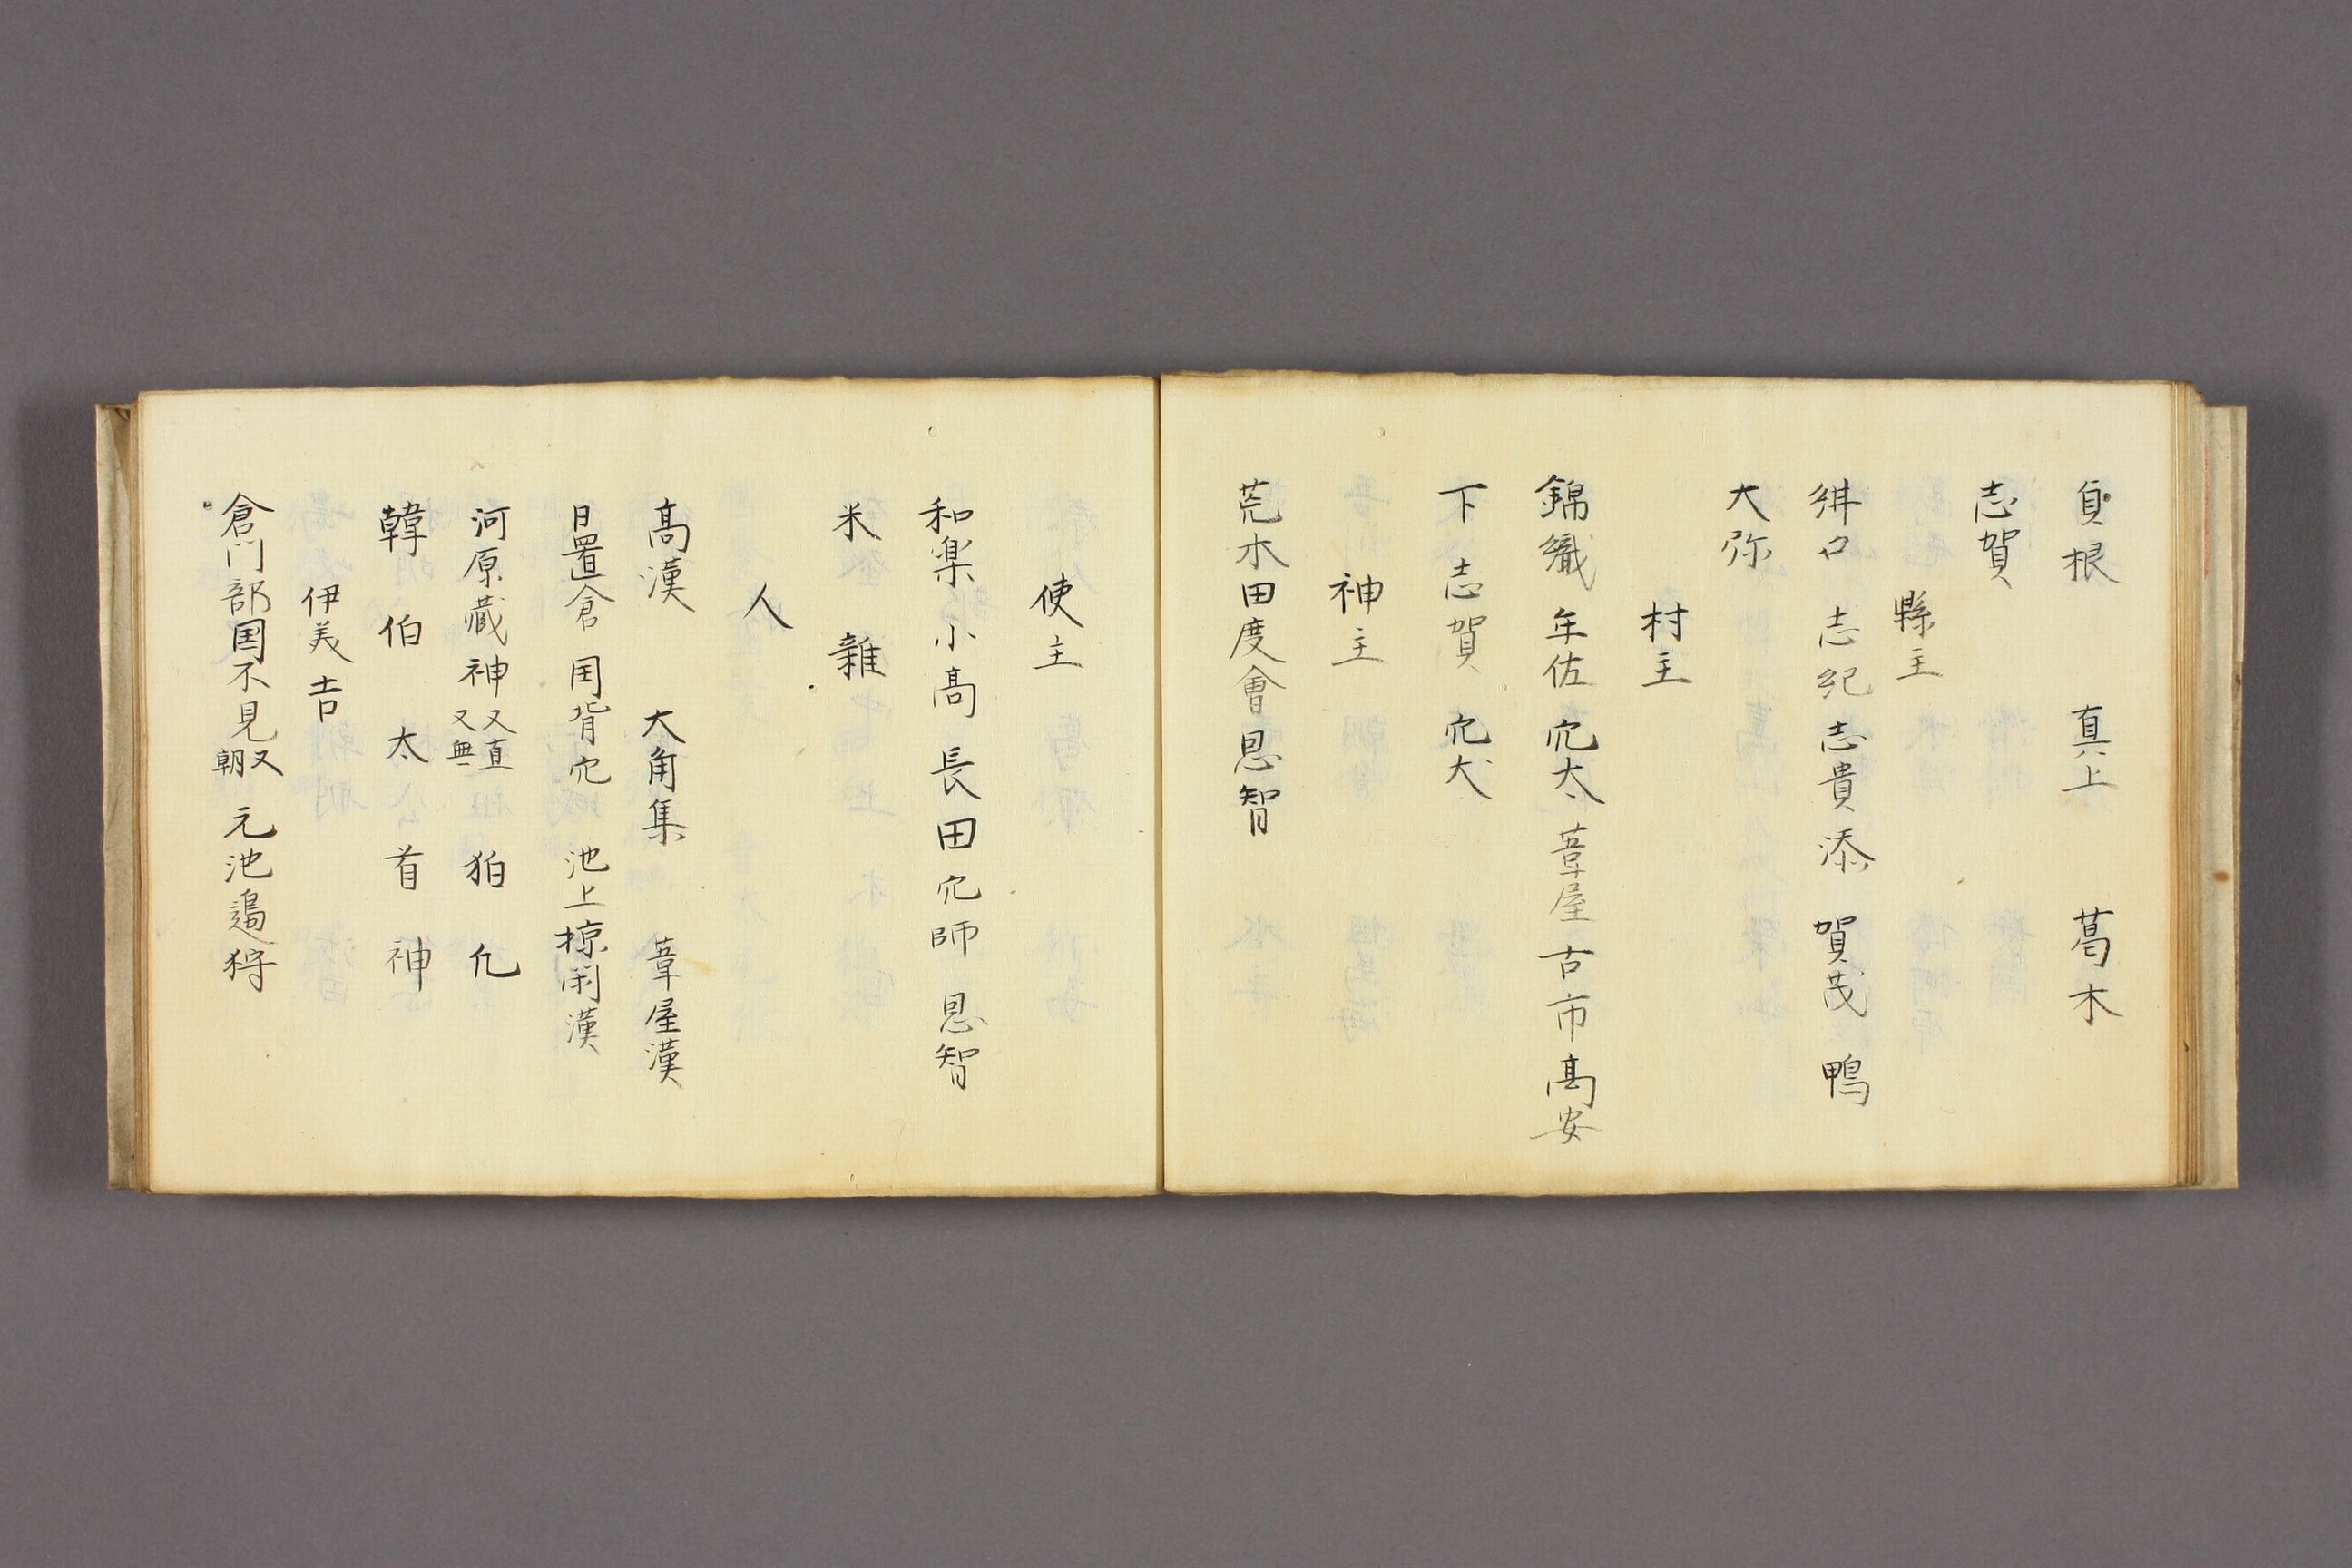 貟根　真上　葛木
志賀
縣主
口　志紀　志貴　添　賀茂　鴨
大弥
村主
錦織　年佐　穴太　葦屋　古市　高安
下　志賀　穴太
神主
荒木田　度會　恩智
使主
和楽　小高　長田　穴師　恩智
米　雜
人
高漢　大角集　葦屋漢
日置倉　背穴　池上椋　漢
河原藏　神又直又無　狛　
韓　伯　太　首　神
伊美吉
倉門部国不見又朝　元池邉狩